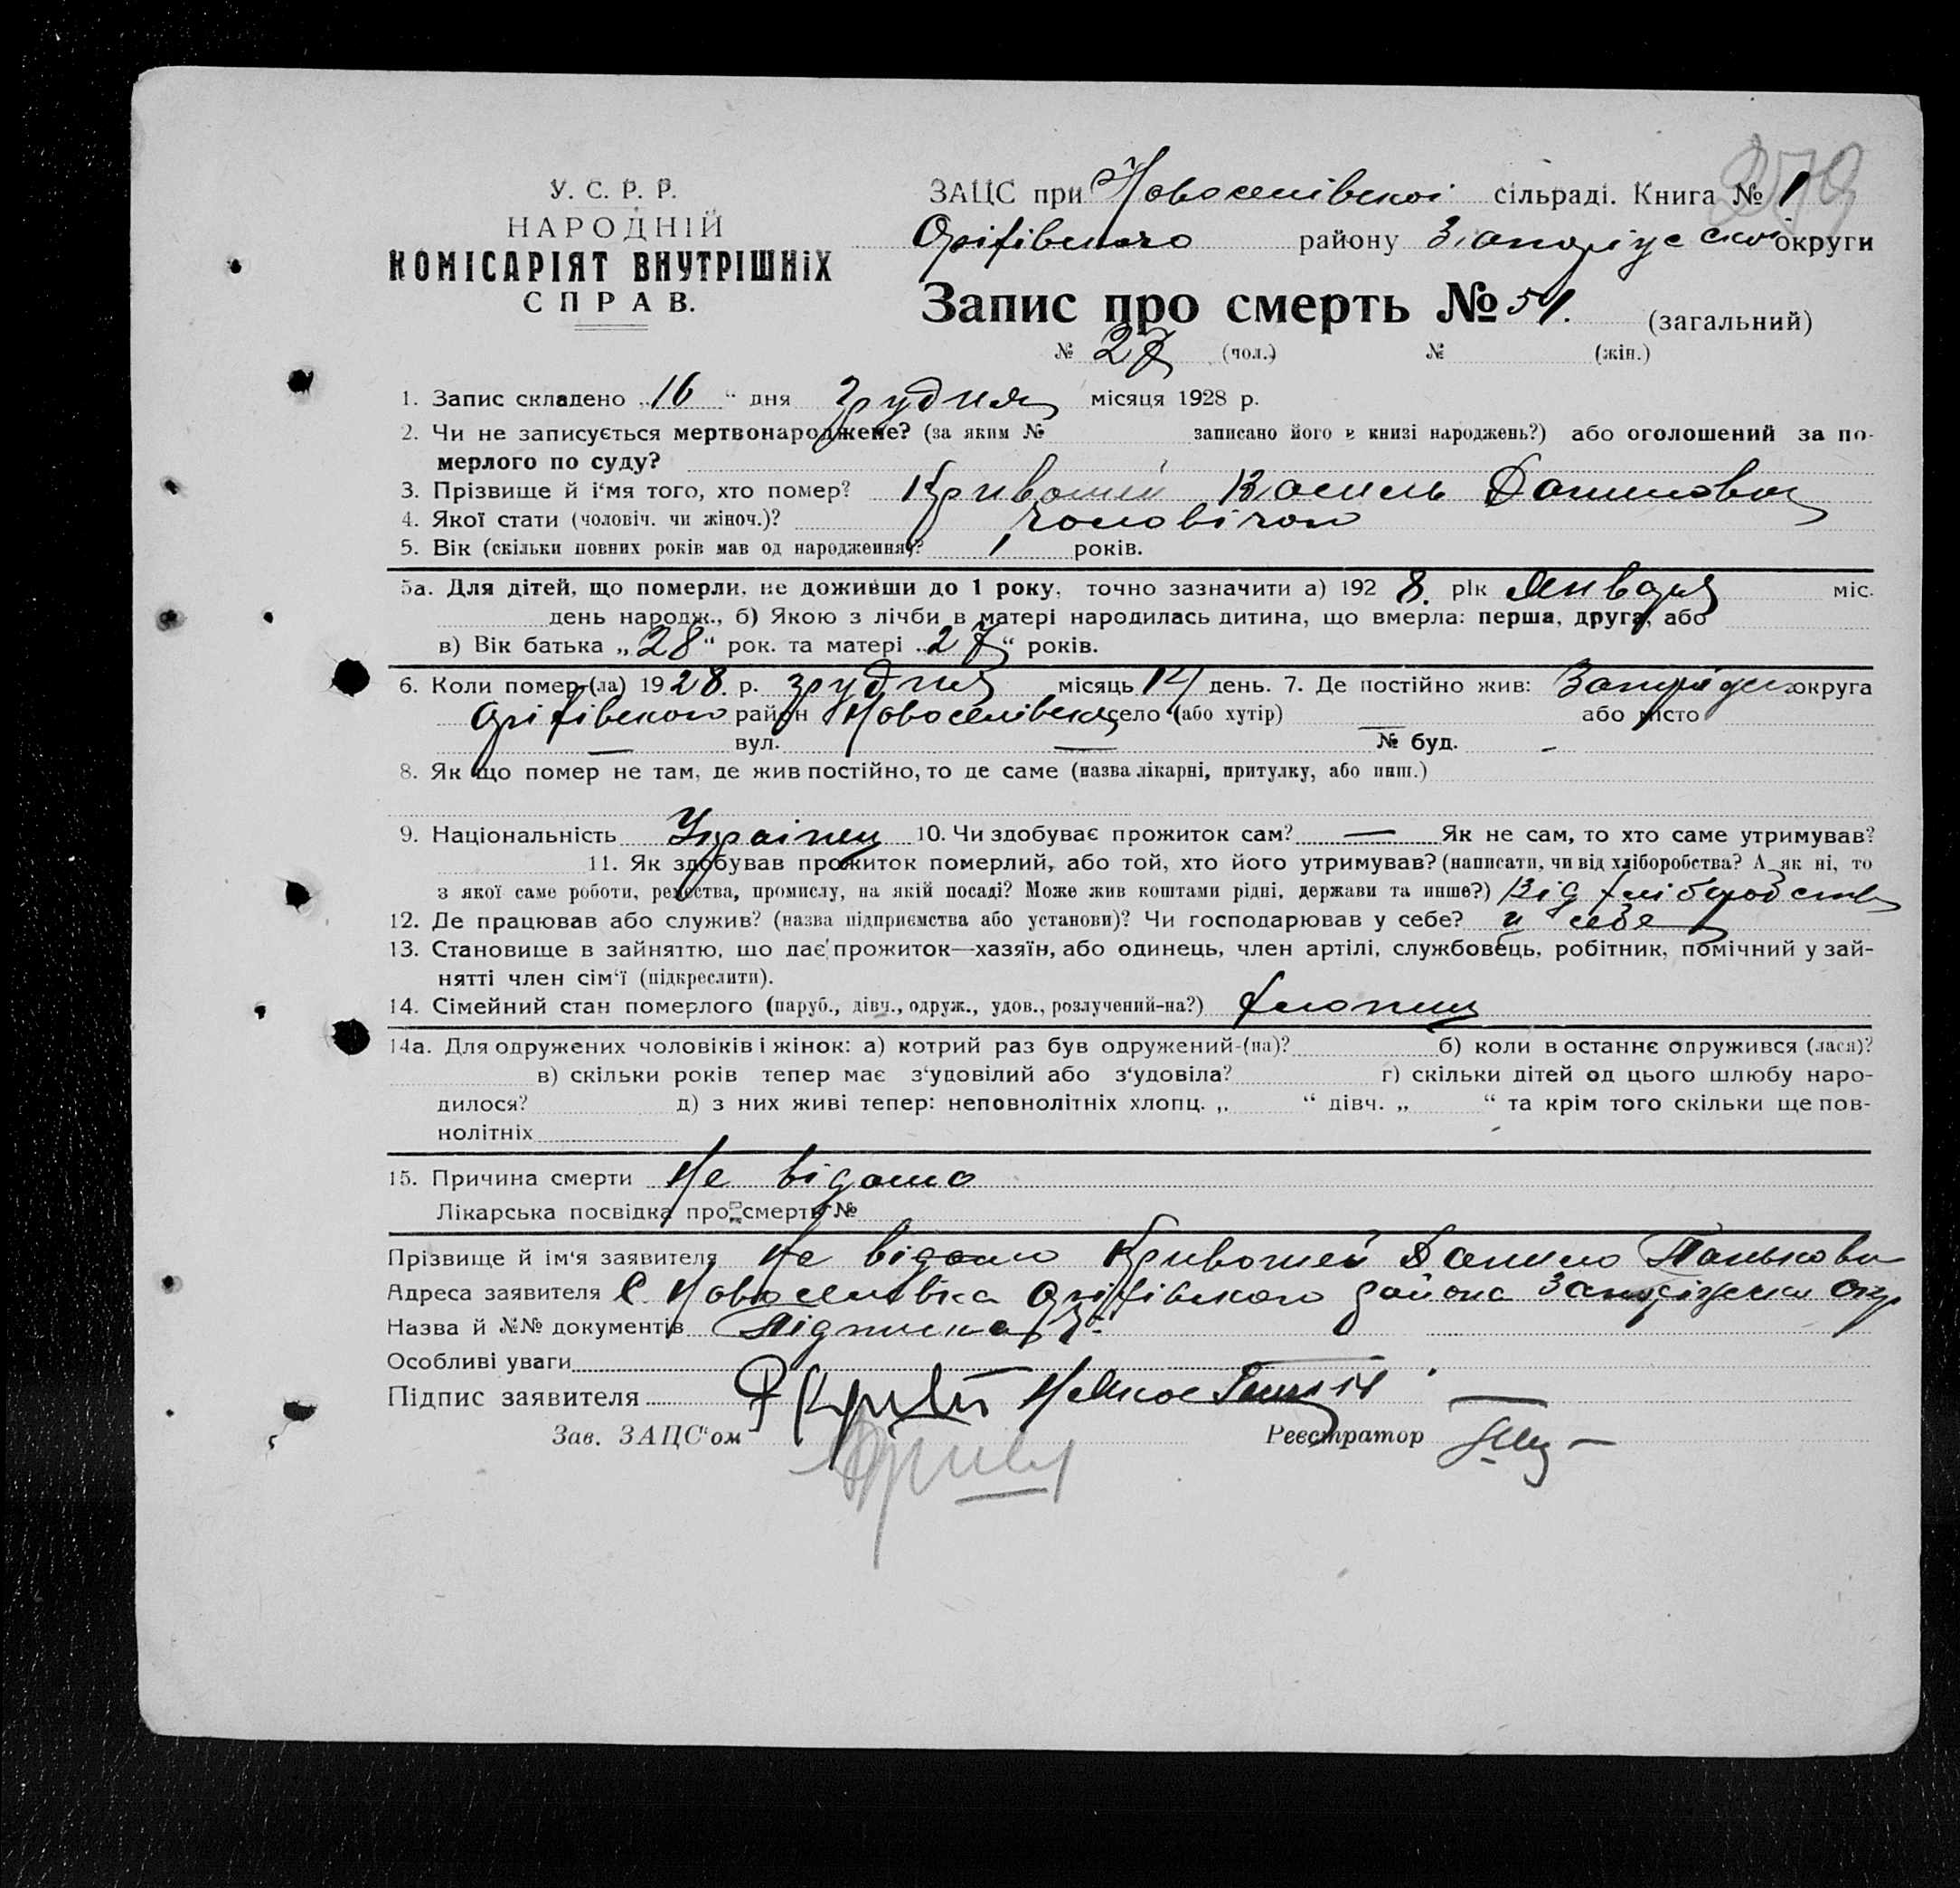 279
У. С. Р. Р.
НАРОДНІЙ
КОМІСАРІЯТ ВНУТРІШНІХ
СПРАВ.
ЗАЦС при Новоселівскої сільраді. Книга № 1
Оріхівського району Запоріжской округи
Запис про смерть № 51. (загальний)
№ 27 (чол.) № (жін.)
1. Запис складено „16“ дня грудня місяця 1928 р.
2. Чи не записується мертвонароджене? (за яким № записано його в книзі народжень?) або оголошений за по-
мерлого по суду?
3. Прізвище й і‘мя того, хто помер? Кривошей Василь Данилович
4. Якої стати (чоловіч. чи жіноч.)? чоловічого
5. Вік (скільки повних років мав од народження)? 1 років.
5а. Для дітей, що померли, не доживши до 1 року, точно зазначити а) 1928. рік Января міс.
день народж., б) Якою з лічби в матері народилась дитина, що вмерла: перша, друга, або
в) Вік батька „28“ рок. та матері „27“ років.
6. Коли помер-(ла) 1928. р. грудня місяць 14 день. 7. Де постійно жив: округа
Оріхівського район Новоселівка село (або хутір) — або місто
— вул. — № буд. -
8. Як що помер не там, де жив постійно, то де саме (назва лікарні, притулку, або инш.)
9. Національність Українец 10. Чи здобуває прожиток сам? — Як не сам, то хто саме утримував?
11. Як здобував прожиток померлий, або той, хто його утримував? (написати, чи від хліборобства? А як ні, то
з якої саме роботи, ремества, промислу, на якій посаді? Може жив коштами рідні, держави та инше?) Від хліборобства
12. Де працював або служив? (назва підприємства або установи)? Чи господарював у себе? у себе
13. Становище в зайняттю, шо дає прожиток—хазяїн, або одинець, член артілі, службовець, робітник, помічний у зай-
нятті член сім‘ї (підкреслити).
14. Сімейний стан померлого (паруб., дівч., одруж., удов., розлучений-на?) хлопець
14а. Для одружених чоловіків і жінок: а) котрий раз був одружений-(на)? б) коли востаннє одружився (лася)?
в) скільки років тепер має з‘удовілий або з‘удовіла? г) скільки дітей од цього шлюбу наро-
дилося? д) з них живі тепер: неповнолітніх хлопц. „ “ дівч. „ “ та крім того скільки ще пов-
нолітніх
15. Причина смерти Не відомо
Лікарська посвідка про смерть №
Прізвище й ім‘я заявителя Не відомо Кривошей Данило Панькови
Адреса заявителя С. Новоселівка Оріхівського района Запоріжски окр
Назва й №№ документів
Особливі уваги
Підпис заявителя
Зав. ЗАЦС“ом Реєстратор